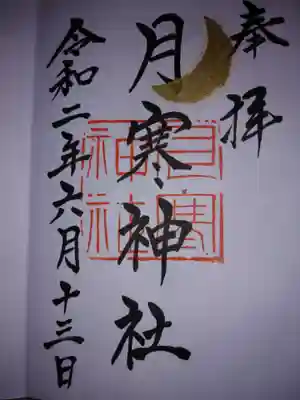 奉拝
月寒神社
月寒
神社
令和二年六月十三日